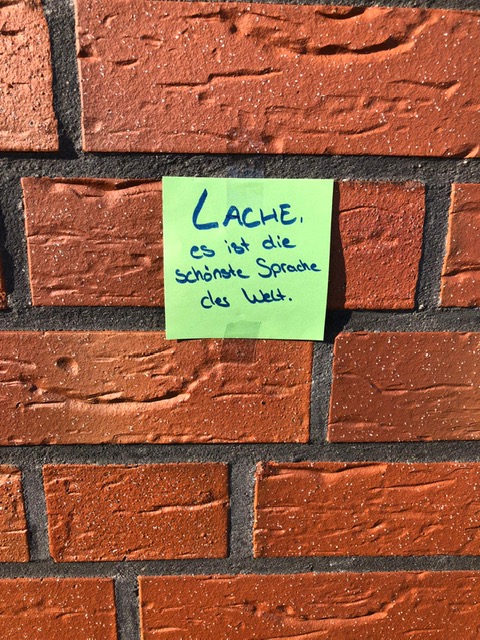 LACHE,
es ist die
schönste Sprache
der Welt.